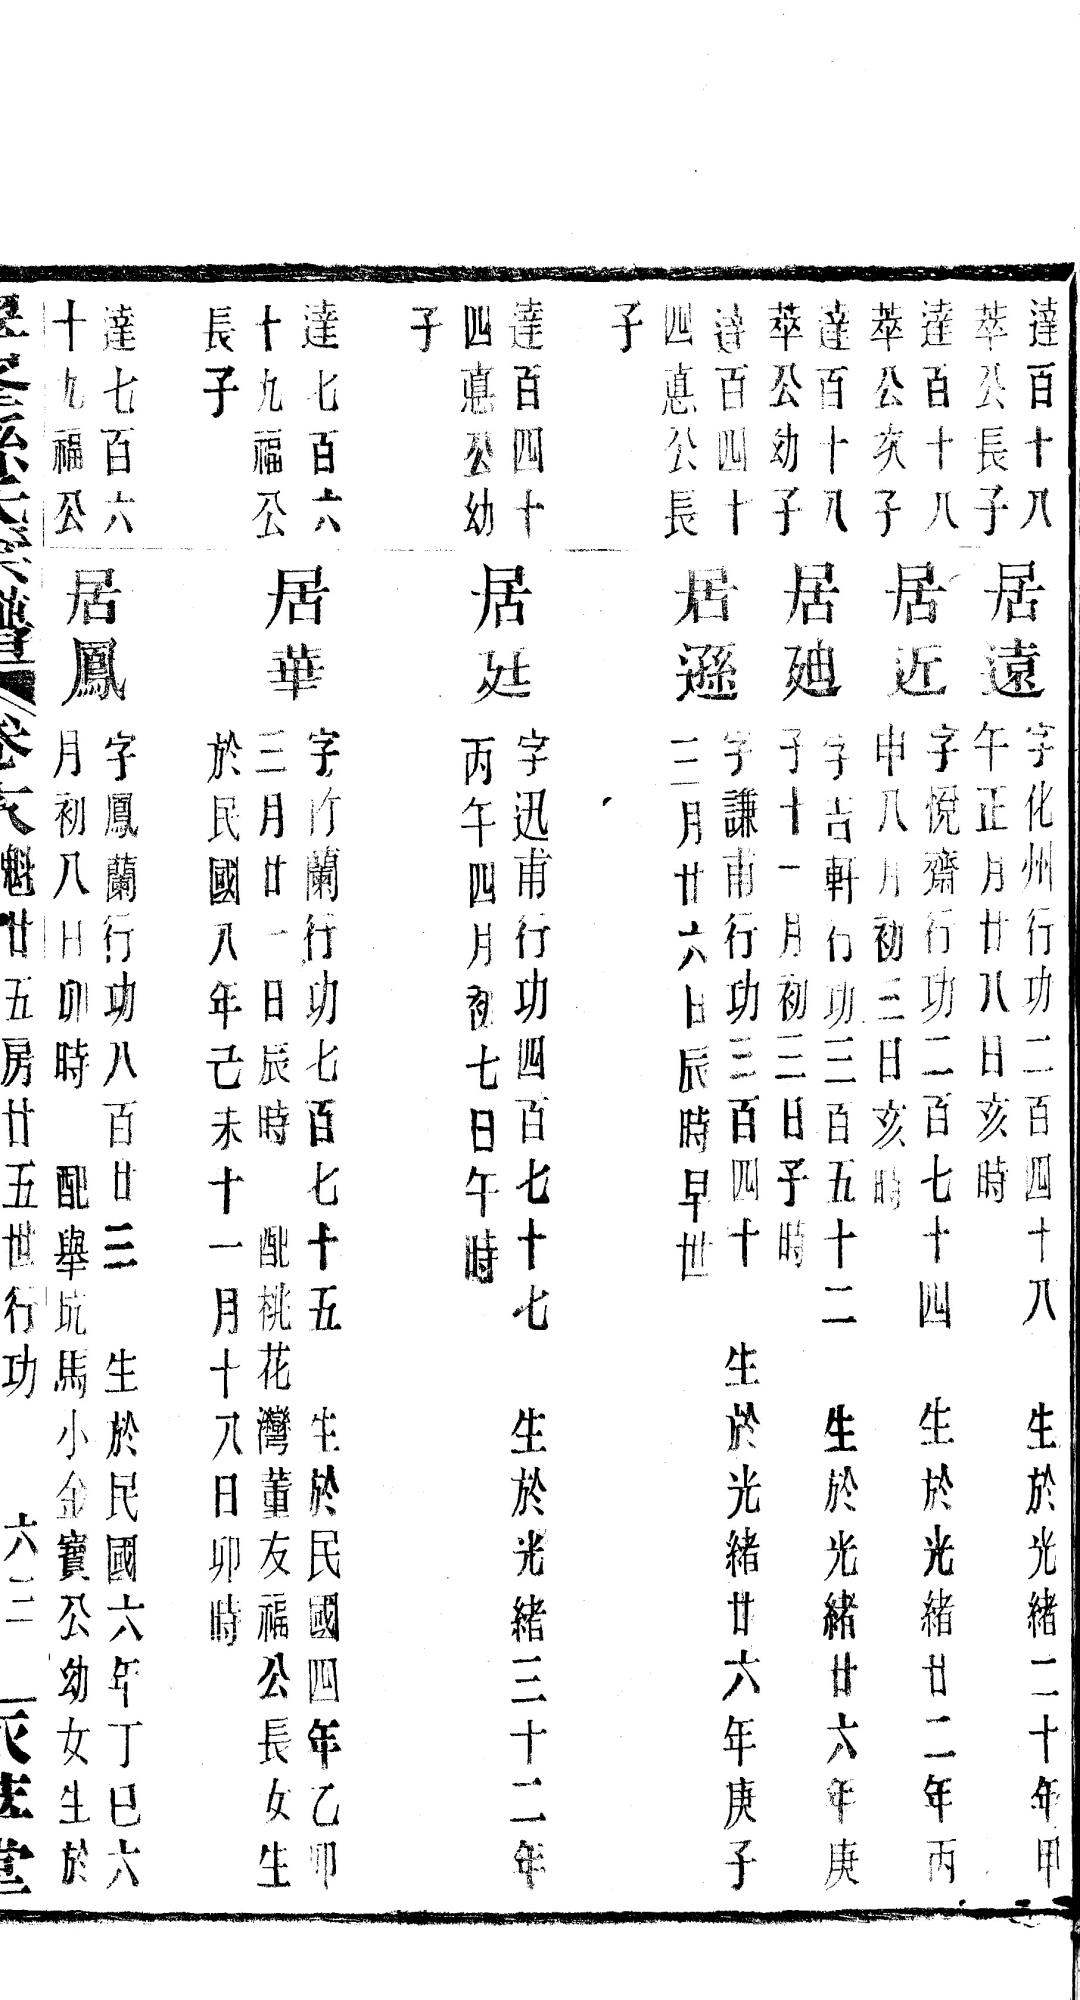 達百十八
萃公長子
居遠
字化州行功二百四十八 生於光緒二十年甲
午正月廿八日亥時
達百十八
萃公次子
居近
字悅齋行功二百七十四 生於光緒廿二年丙
申八月初三日亥時
達百十八
萃公幼子
居廸
字吉軒行功三百五十二 生於光緒廿六年庚
子十一月初三日子時
達百四十
四憙公長
子
居遜
字謙甫行功三百四十 生於光緒廿六年庚子
三月廿六日辰時早世
達百四十
四憙公幼
子
居廷
字迅甫行功四百七十七 生於光緒三十二年
丙午四月初七日午時
達七百六
十九福公
長子
居華
字竹蘭行功七百七十五 生於民國四年乙卯
三月廿一日辰時 配桃花灣董友福公長女生
於民國八年己未十一月十八日卯時
達七百六
十九福公
居鳳
字鳳蘭行功八百廿三 生於民國六年丁巳六
月初八日卯時 配舉坑馬小金寶公幼女生於
魁廿五房廿五世行功 六三